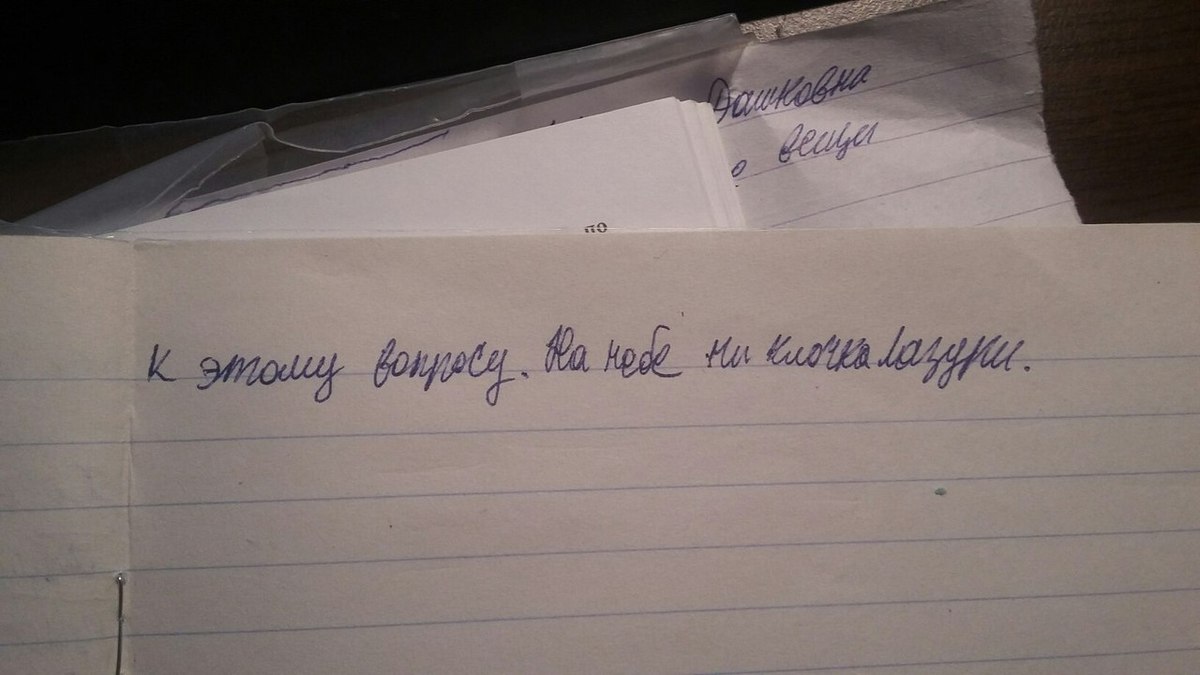 Дашковна
вещи
по
К этому вопросу. На небе ни клочка лазури.